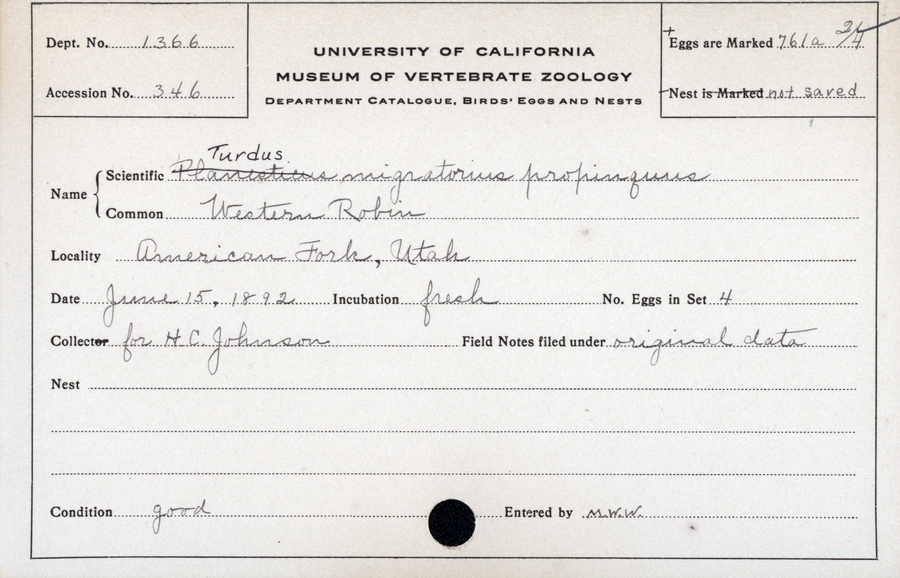 Dept. No. 1366
Accession No. 346
UNIVERSITY OF CALIFORNIA
MUSEUM OF VERTEBRATE ZOOLOGY
DEPARTMENT CATALOGUE, BIRDS' EGGS AND NESTS
Eggs are Marked 761a 2/4
Nest is Marked not saved
Turdus
Name Scientific Planesticus migratorius propinquus
Common Western Robin
Locality American Fork, Utah
Date June 15, 1892 Incubation fresh No. Eggs in Set 4
Collector for H.C. Johnson Field Notes filed under original data
Nest
Condition good Entered by M.W.W.